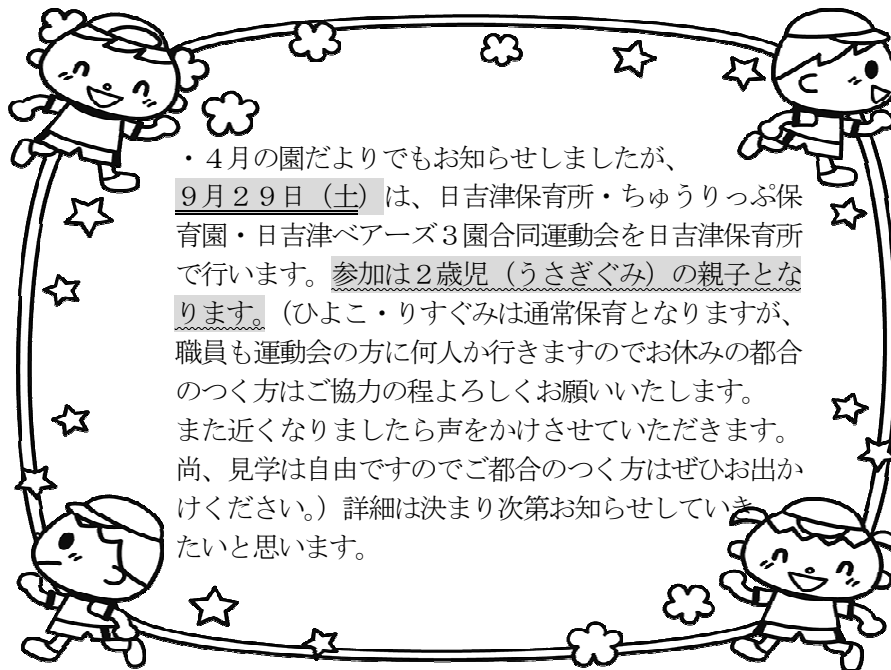 ・４月の園だよりでもお知らせしましたが、
９月２９日（土）は、日吉津保育所・ちゅうりっぷ保
育園・日吉津ベアーズ３園合同運動会を日吉津保育所
で行います。参加は２歳児（うさぎぐみ）の親子とな
ります。（ひよこ・りすぐみは通常保育となりますが、
職員も運動会の方に何人か行きますのでお休みの都合
のつく方はご協力の程よろしくお願いいたします。
また近くなりましたら声をかけさせていただきます。
尚、見学は自由ですのでご都合のつく方はぜひお出か
けください。）詳細は決まり次第お知らせしていき
たいと思います。